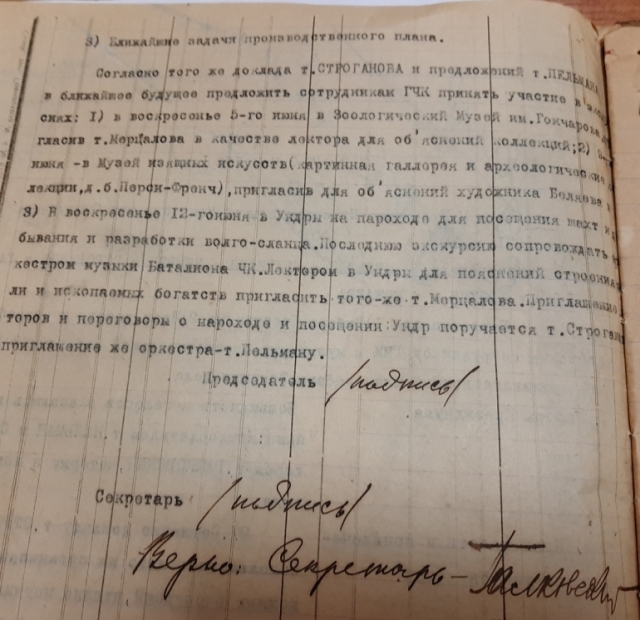 3) Ближайшие задачи производственного плана.
Согласно того же доклада т.СТРОГАНОВА и предложений т.ПЕЛЬМАНА
в ближайшее будущее предложить сотрудникам ГЧК принять участие в
сиях: 1) в воскресенье 5-го июня в Зоологический Музей им.Гончарова
гласив т.Мерцалова в качестве лектора для об'яснений коллекций;2)
июня -в Музей изящных искусств(картинная галлерея и археологические
лекции,д.б.Перси-Френч),пригласив для об'яснений художника Беляева
3) В воскресенье 12-гоиюня в Ундры на пароходе для посещения шахт
бывания и разработки волго-сланца.Последнюю экскурсию сопровождать
кестром музыки Баталиона ЧК.Лектором в Ундры для пояснений строения
ли и ископаемых богатств пригласить того-же т.Мерцалова.Приглашение
торов и переговоры о пароходе и посещении Ундр поручается т.Строган
приглашение же оркестра-т.Пельману.
Председатель /подпись/
Секретарь /подпись/
Верно: Секретарь-